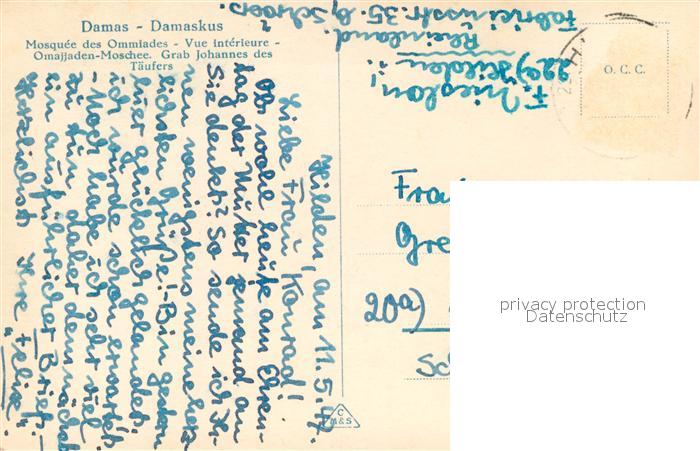 Damas - Damaskus
Mosquée des Ommiades - Vue intérieure -
Omajjaden-Moschee. Grab Johannes des
Täufers
Hilden, am 11.5.
Liebe Frau Konrad!
Ob wohl heute am Ehren-
tag der Mutter jemand an
Sie denkt? So sende ich Ih-
nen wenigstens meine herz-
lichsten Grüße! - Bin gestern
hier glücklich gelandet.
ich wurde schon erwartet.
- Noch habe ich sehr viel
zu tun, daher demnächst
ein ausführlicher Brief.-
Herzlichst Ihre
F.
22a) Hilden
Rheinland.
Fabriciusstr. 35.
O. C. C.
Frau
Gre
20a)
Sc
C
M&S
privacy protection
Datenschutz